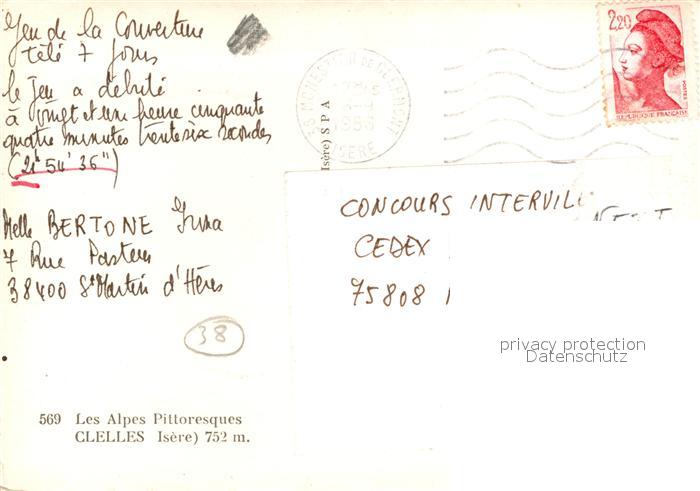 Jeu de la Couverture
Télé 7 Jours
le Jeu a débité
à vingt et une heure cinquante
quatre minutes trente six secondes
(21h 54' 36")
Melle BERTONE
7 Rue Pasteur
38400 St Martin d'Hères
38
569 Les Alpes Pittoresques
CLELLES Isère) 752 m.
Isère) S P A
38 MONESTIER DE CLERMONT
ISERE
2,20
POSTES
REPUBLIQUE FRANÇAISE
CONCOURS INTERVIL
CEDEX
75808
privacy protection
Datenschutz